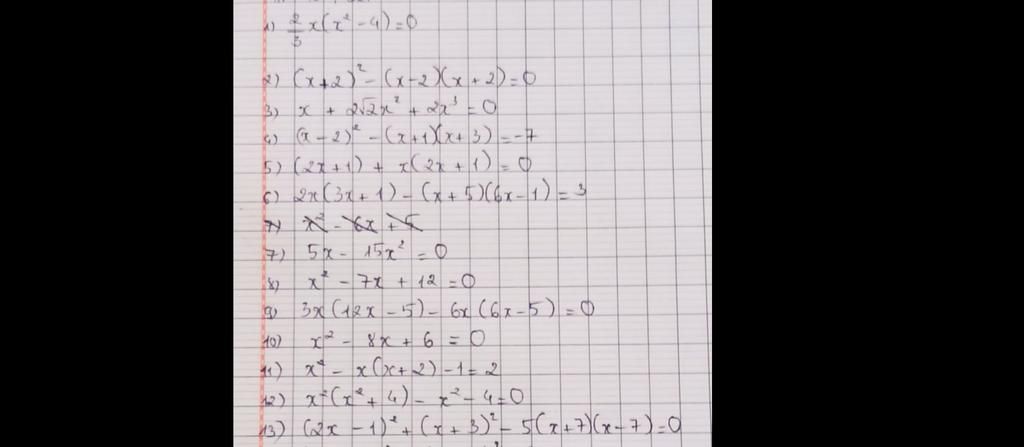 1) 2/3 x(x² - 4) = 0
2) (x + 2)² - (x - 2)(x + 2) = 0
3) x + 2√2x² + 2x³ = 0
4) (x - 2)² - (x + 1)(x + 3) = -7
5) (2x + 1) + x(2x + 1) = 0
6) 2x(3x + 1) - (x + 5)(6x - 1) = 3
7) x² - 6x + 5
7) 5x - 15x² = 0
8) x² - 7x + 12 = 0
9) 3x(12x - 5) - 6x(6x - 5) = 0
10) x² - 8x + 6 = 0
11) x² - x(x + 2) - 1 = 2
12) x²(x² + 4) - x² - 4 = 0
13) (2x - 1)² + (x + 3)² - 5(x + 7)(x - 7) = 0